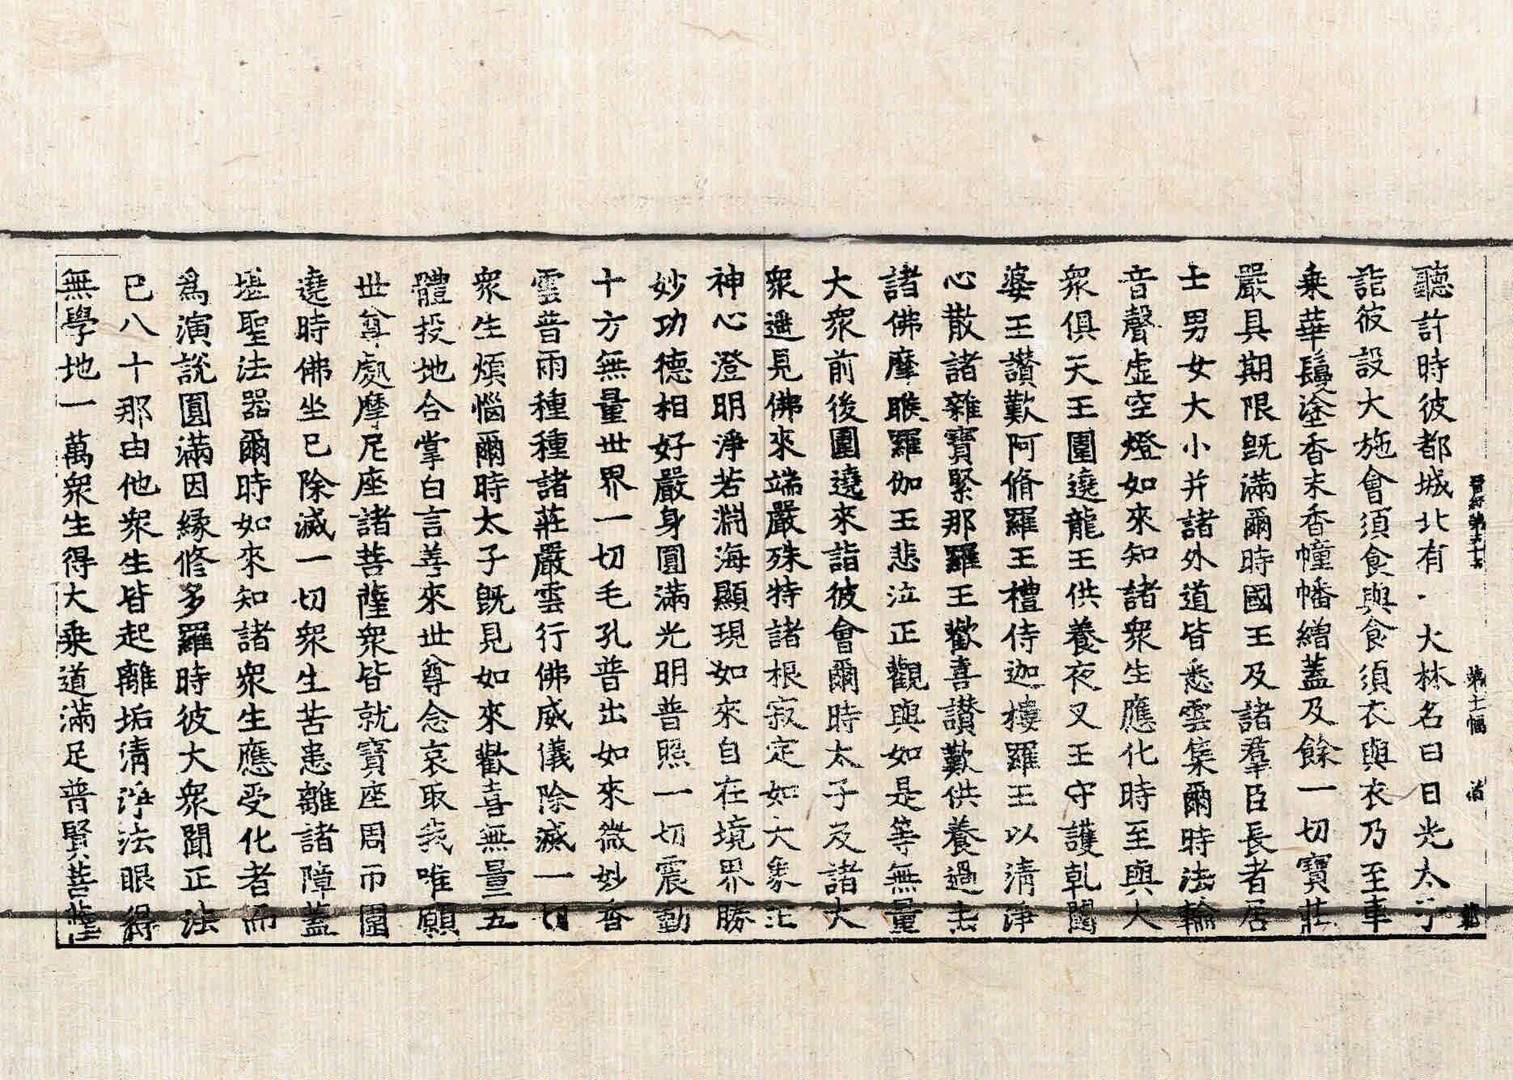 聽許時彼都城北有一大林名曰日光太子
詣彼設大施會須食與食須衣與衣乃至車
乘華鬘塗香末香幢幡繒蓋及餘一切寶莊
嚴具期限旣滿爾時國王及諸羣臣長者居
士男女大小并諸外道皆悉雲集爾時法輪
音聲虛空燈如來知諸衆生應化時至與大
衆俱天王圍遶龍王供養夜叉王守護乹闥
婆王讃歎阿脩羅王禮侍迦樓羅王以清淨
心散諸雜寶緊那羅王歡喜讃歎供養過去
諸佛摩睺羅伽王悲泣正觀與如是等無量
大衆前後圍遶來詣彼會爾時太子及諸大
衆遥見佛來端嚴殊特諸根寂定如大象王
神心澄明淨若淵海顯現如來自在境界勝
妙功德相好嚴身圓滿光明普照一切震動
十方無量世界一切毛孔普出如來微妙香
雲普雨種種諸莊嚴雲行佛威儀除滅一切
衆生煩惱爾時太子旣見如來歡喜無量五
體投地合掌白言善來世尊念哀取我唯願
世尊處摩尼座諸菩薩衆皆就寶座周帀圍
遶時佛坐已除滅一切衆生苦患離諸障蓋
堪聖法器爾時如來知諸衆生應受化者而
爲演說圓滿因緣修多羅時彼大衆聞正法
已八十那由他衆生皆起離垢清淨法眼得
無學地一萬衆生得大乘道滿足普賢菩薩